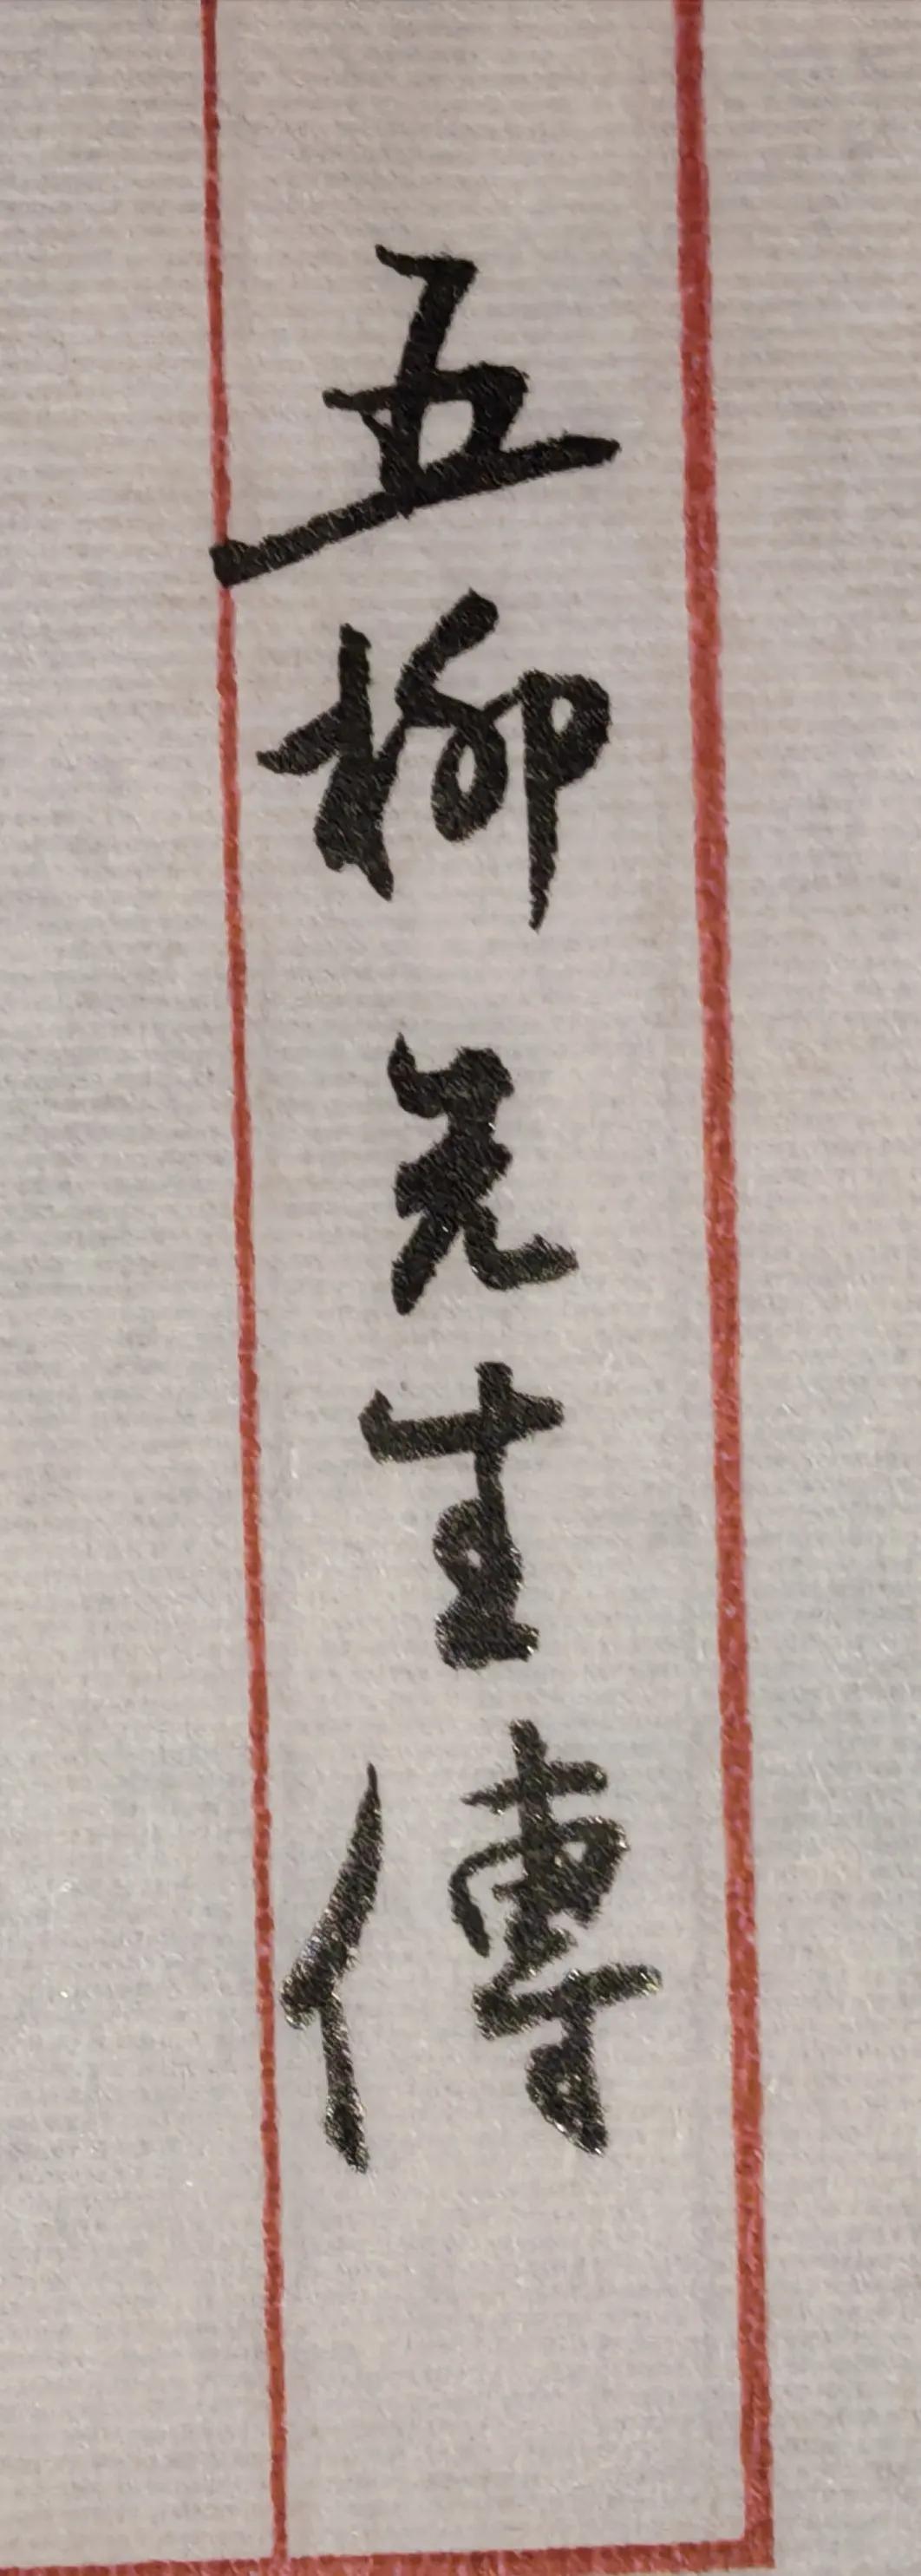 五柳先生傳